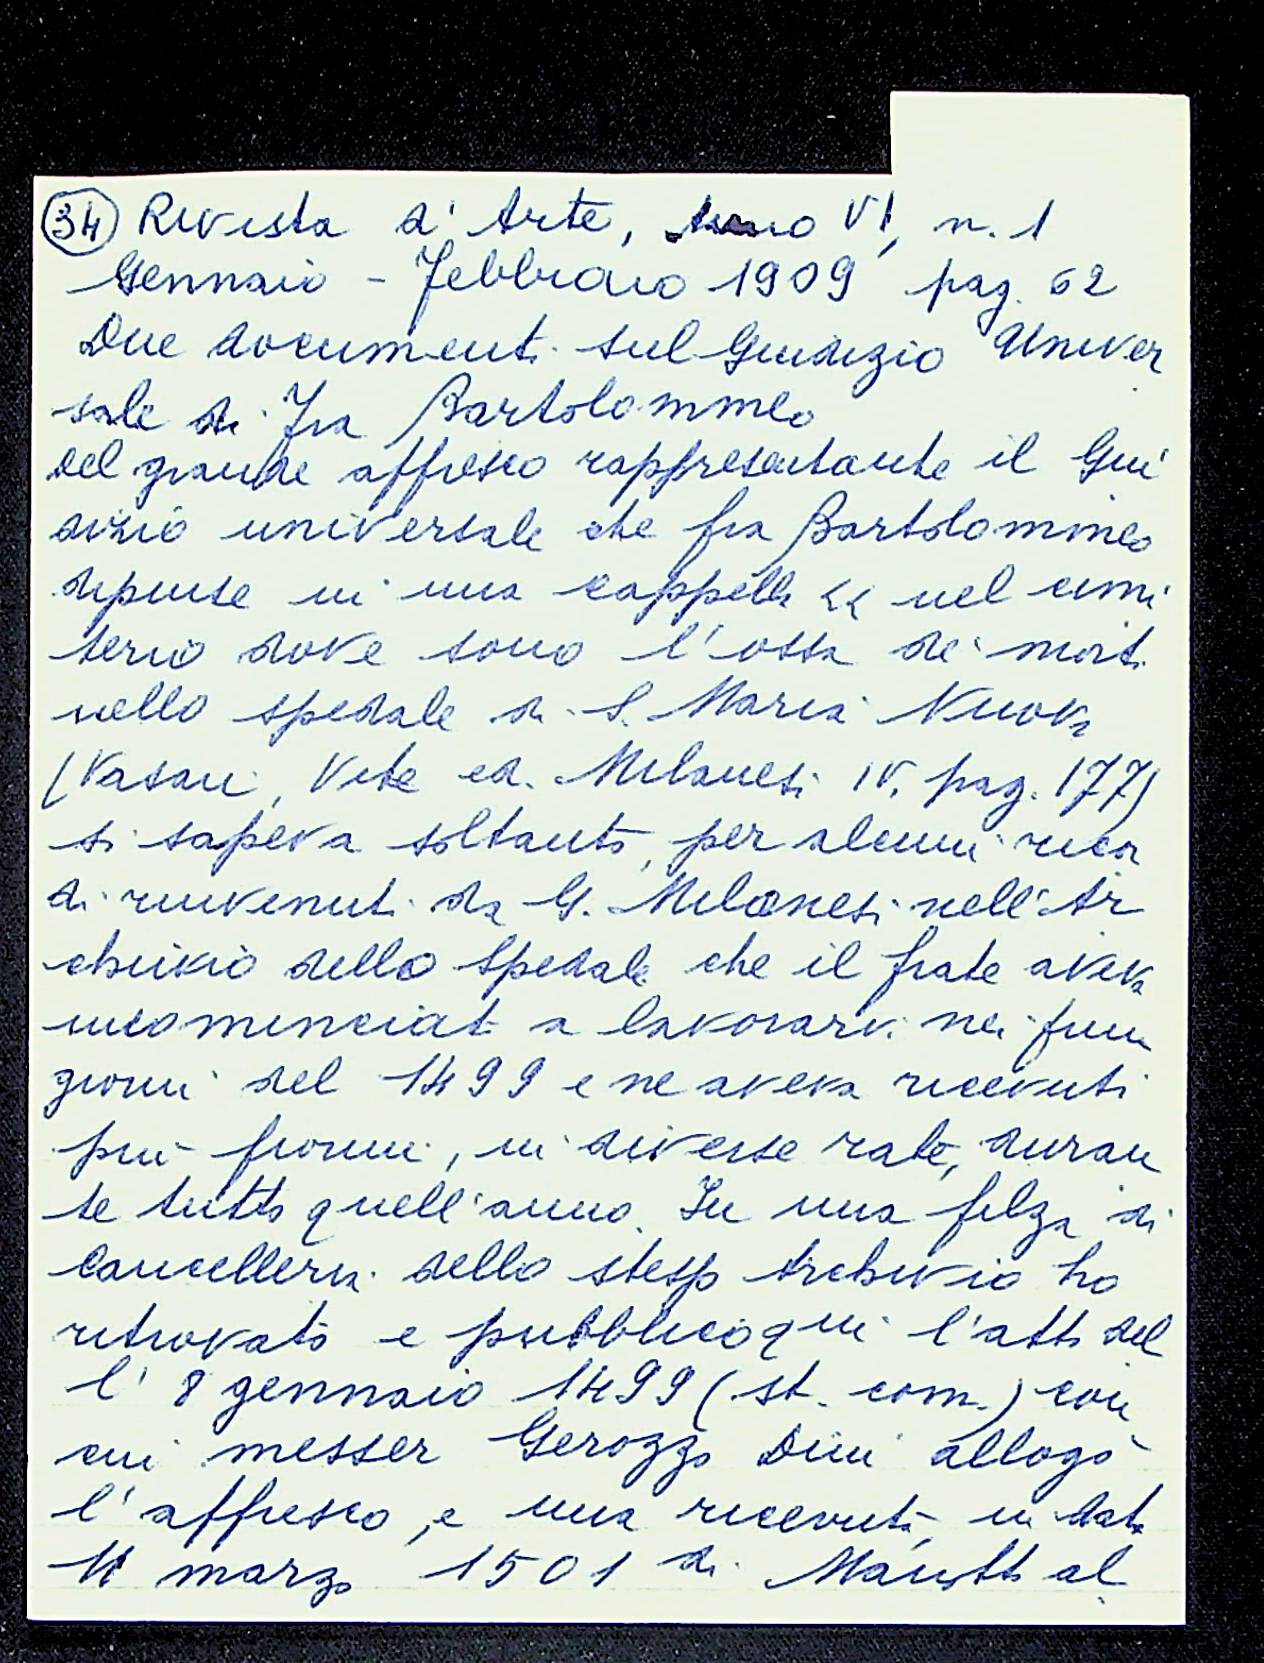 34 Rivista d'Arte, Anno VI, n. 1
Gennaio - Febbraio 1909 pag. 62
Due documenti sul Giudizio Univer
sale di Fra Bartolommeo
Del grande affresco rappresentante il Giu
dizio universale che fra Bartolommeo
dipinse in una cappella << nel cimi
terio dove sono l'ossa de' morti
nello spedale di S. Maria Nuova
(Vasari, Vite ed. Milanesi IV, pag. 177)
si sapeva soltanto, per alcuni ricor
di rinvenuti da G. Milanesi nell'Ar
chivio dello Spedale che il frate aveva
incominciato a lavorarvi nei primi
giorni del 1499 e ne aveva ricevuti
più fiorini, in diverse rate, duran
te tutto quell'anno. In una filza di
Cancelleria dello stesso Archivio ho
ritrovato e pubblico qui l'atto del
l' 8 gennaio 1499 (st. com.) con
cui messer Gerozzo Dini allogò
l'affresco, e una ricevuta, in data
11 marzo 1501 di Mariotto al